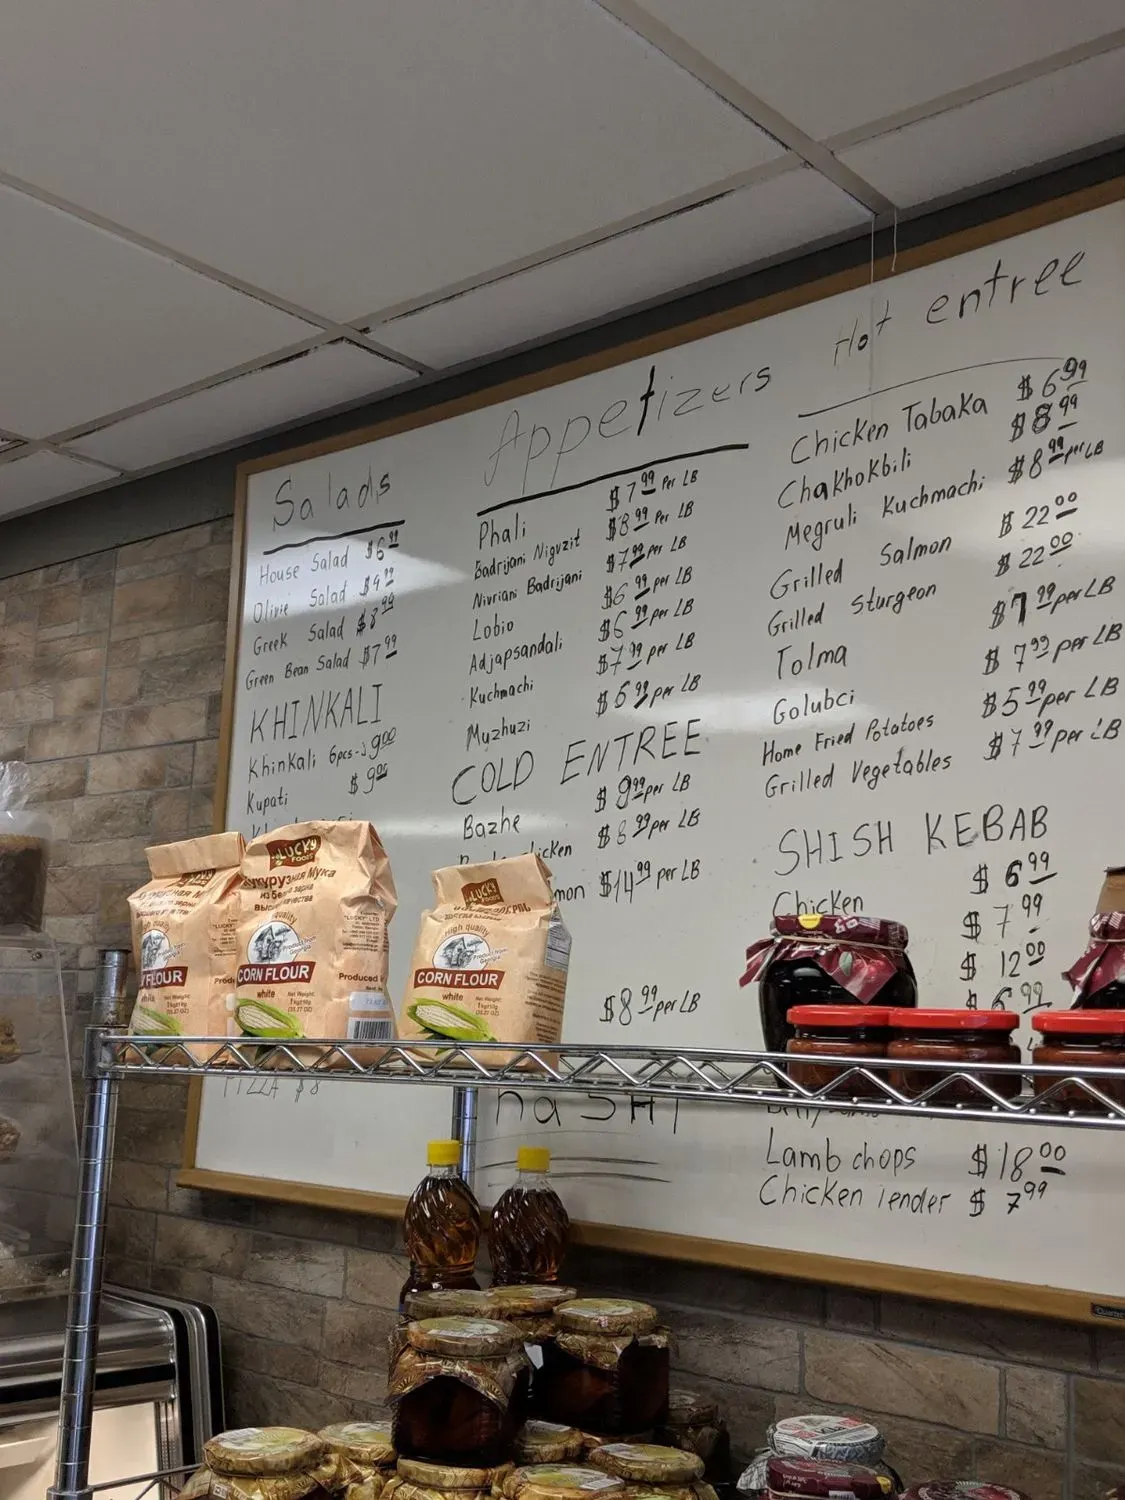 Salads
House Salad $6.99
Olivie Salad $4.99
Greek Salad $8.99
Green Bean Salad $7.99
KHINKALI
Khinkali 6pcs- 9.00
Kupati $9.00
PIZZA $8
Appetizers
Phali $7.99 Per LB
Badrijani Nigvzit $8.99 Per LB
Nivriani Badrijani $7.99 per LB
Lobio $6.99 per LB
Adjapsandali $6.99 per LB
Kuchmachi $7.99 per LB
Muzhuzi $6.99 per LB
COLD ENTREE
Bazhe $9.99 per LB
$8.99 per LB
$14.99 per LB
$8.99 per LB
Hot entree
Chicken Tabaka $6.99
Chakhokbili $8.99
Megruli Kuchmachi $8.99 per LB
Grilled Salmon $22.00
Grilled Sturgeon $22.00
Tolma $7.99 per LB
Golubci $7.99 per LB
Home Fried Potatoes $5.99 per LB
Grilled Vegetables $7.99 per LB
SHISH KEBAB
Chicken $6.99
$7.99
$12.00
$6.99
Lamb chops $18.00
Chicken lender $7.99
LUCKY
FOODS
Мука
High quality
Product from Georgia
CORN FLOUR
white
Net Weight:
1 kg
Produced
LUCKY
High quality
Product from Georgia
CORN FLOUR
white
Net Weight:
1 kg